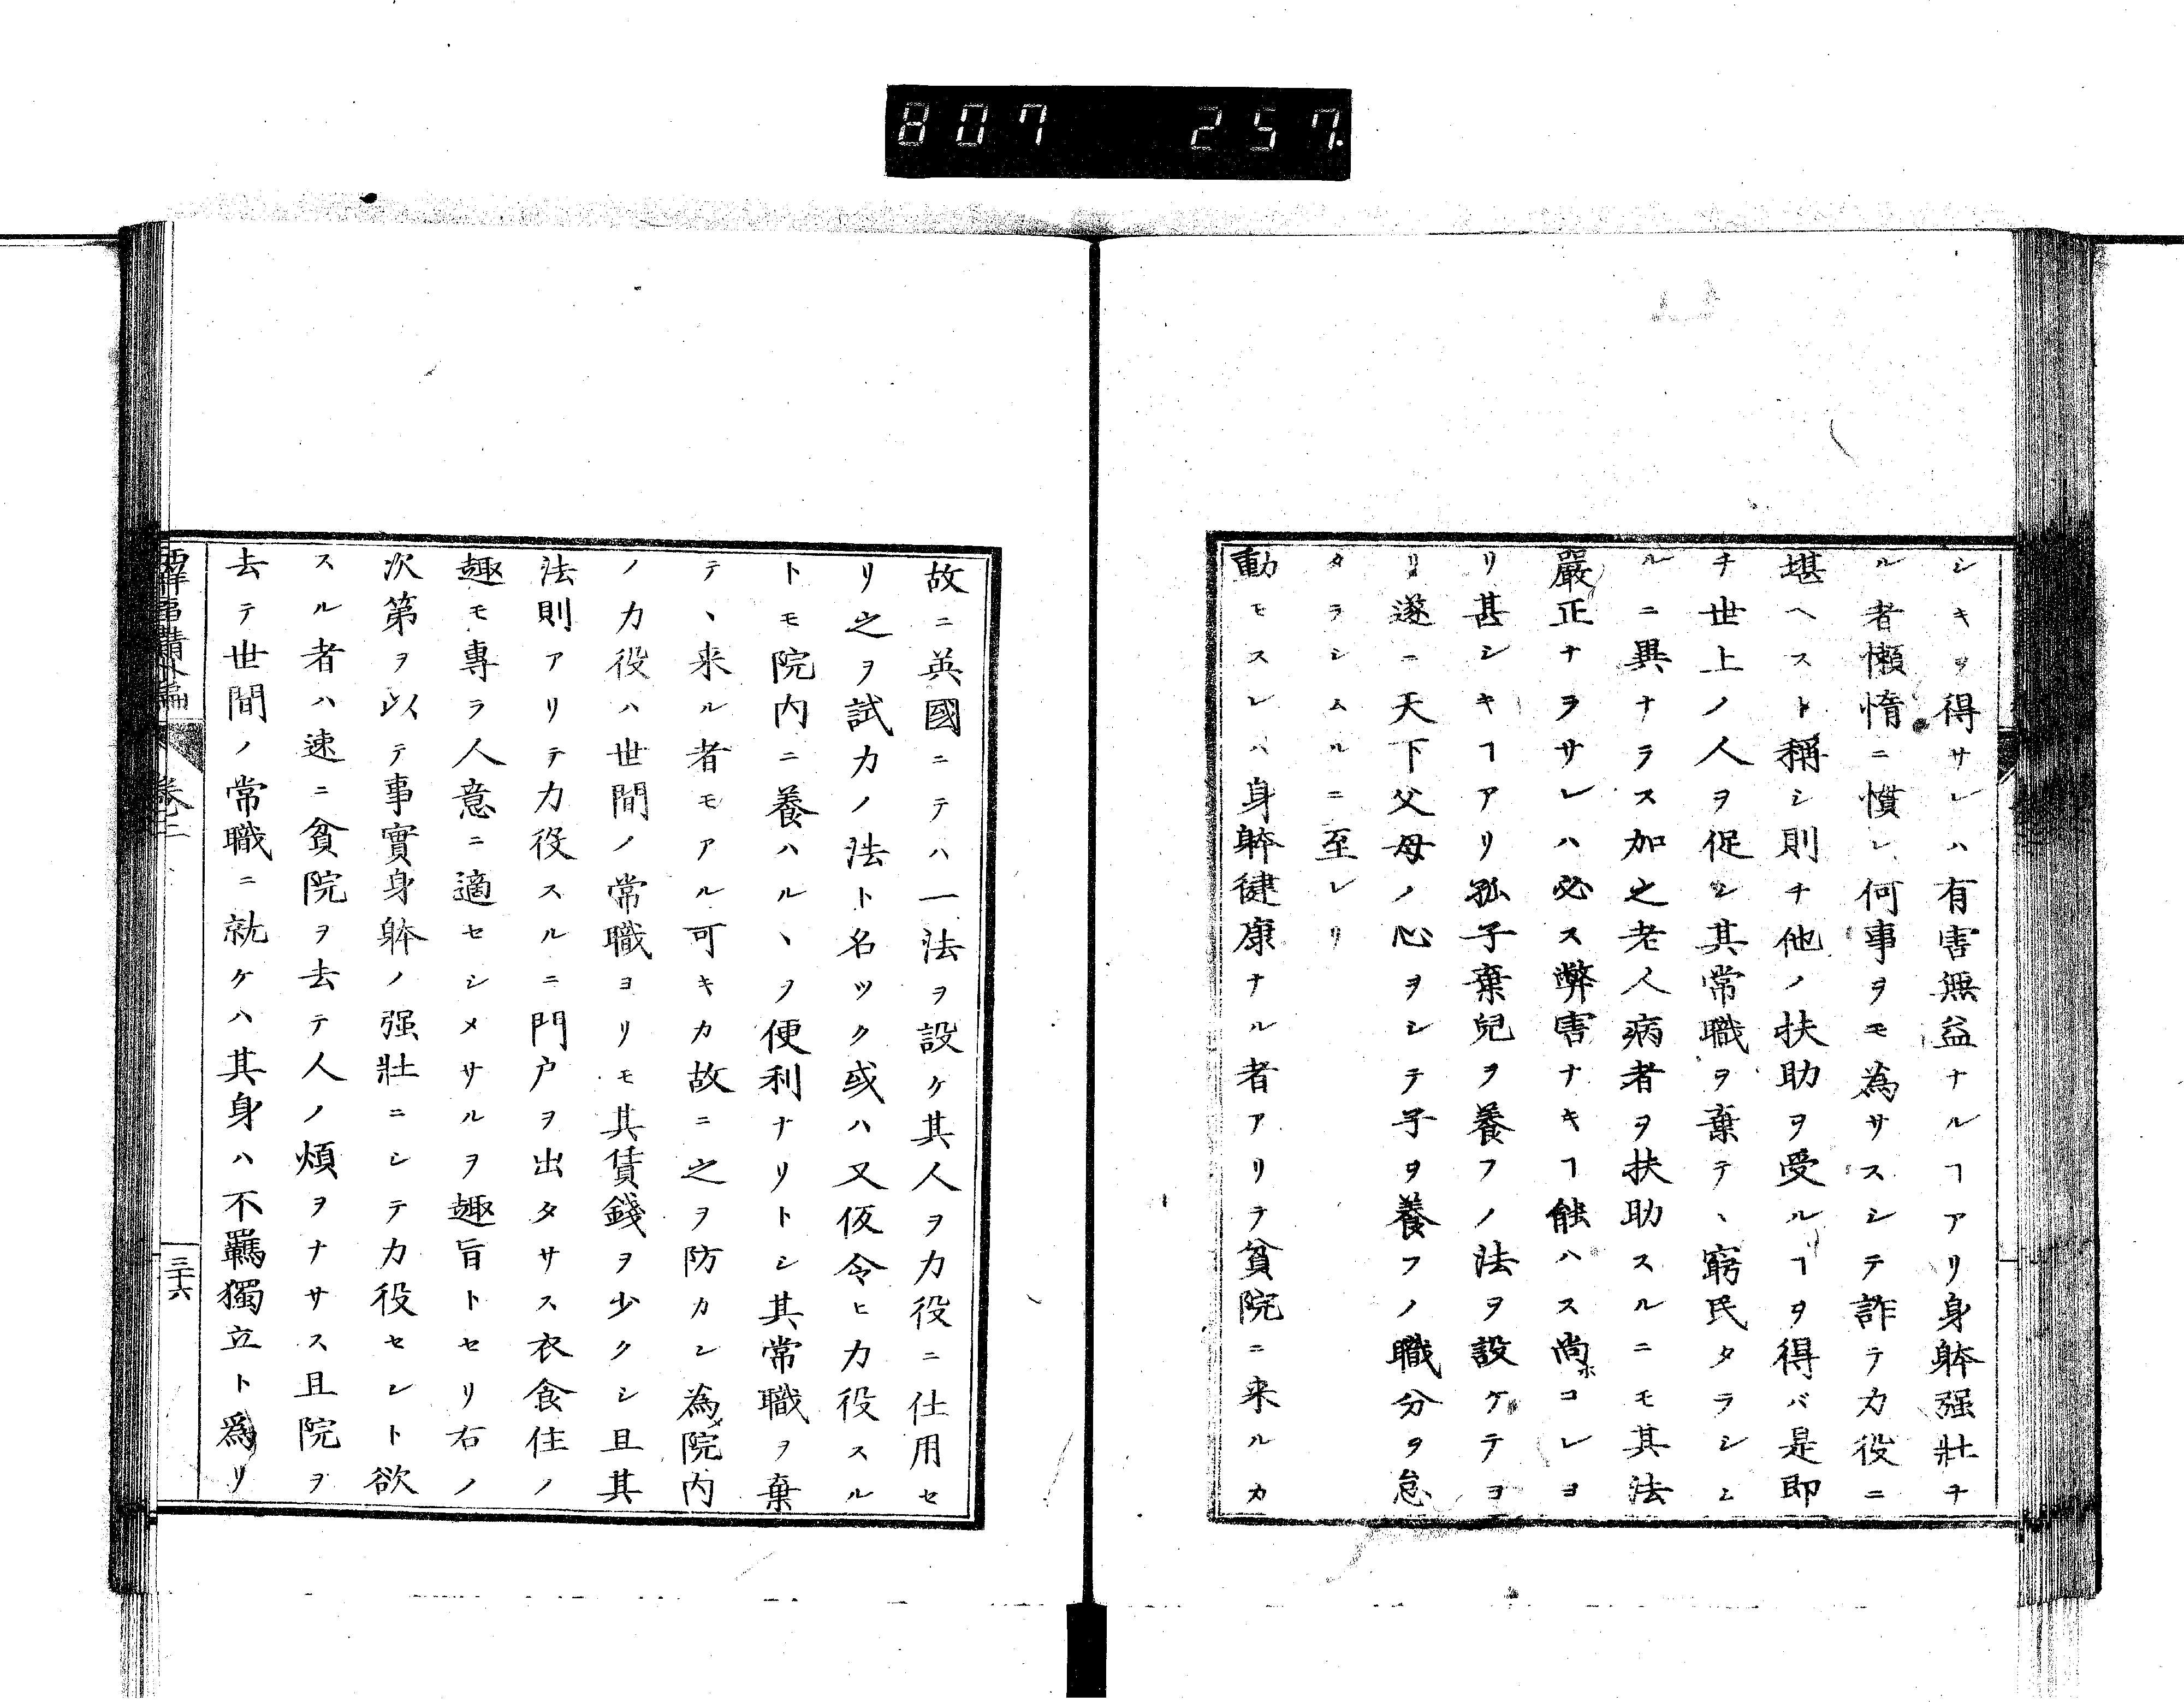 807 257.
シキヲ得サレハ有害無益ナルヿアリ身躰强壯ナ
ル者懶惰ニ慣レ何事ヲモ為サスシテ詐テ力役ニ
堪ヘスト稱シ則チ他ノ扶助ヲ受ルヿヲ得バ是即
チ世上ノ人ヲ促シ其常職ヲ棄テヽ窮民タラシム
ルニ異ナラス加之老人病者ヲ扶助スルニモ其法
嚴正ナラサレハ必ス弊害ナキヿ能ハス尚ホコレヨ
リ甚シキヿアリ孤子棄兒ヲ養フノ法ヲ設ケテヨ
リ遂ニ天下父母ノ心ヲシテ子ヲ養フノ職分ヲ怠
タラシムルニ至レリ
動モスレハ身躰健康ナル者アリテ貧院ニ来ルカ
故ニ英國ニテハ一法ヲ設ケ其人ヲ力役ニ仕用セ
リ之ヲ試力ノ法ト名ツク或ハ又仮令ヒ力役スル
トモ院内ニ養ハルヽヲ便利ナリトシ其常職ヲ棄
テヽ来ル者モアル可キカ故ニ之ヲ防カン為メ院内
ノ力役ハ世間ノ常職ヨリモ其賃錢ヲ少クシ且其
法則アリテ力役スルニ門戸ヲ出タサス衣食住ノ
趣モ專ラ人意ニ適セシメサルヲ趣旨トセリ右ノ
次第ヲ以テ事實身躰ノ强壯ニシテ力役セント欲
スル者ハ速ニ貧院ヲ去テ人ノ煩ヲナサス且院ヲ
去テ世間ノ常職ニ就ケハ其身ハ不羈獨立ト爲リ
西洋事情外編 卷之二 三十六